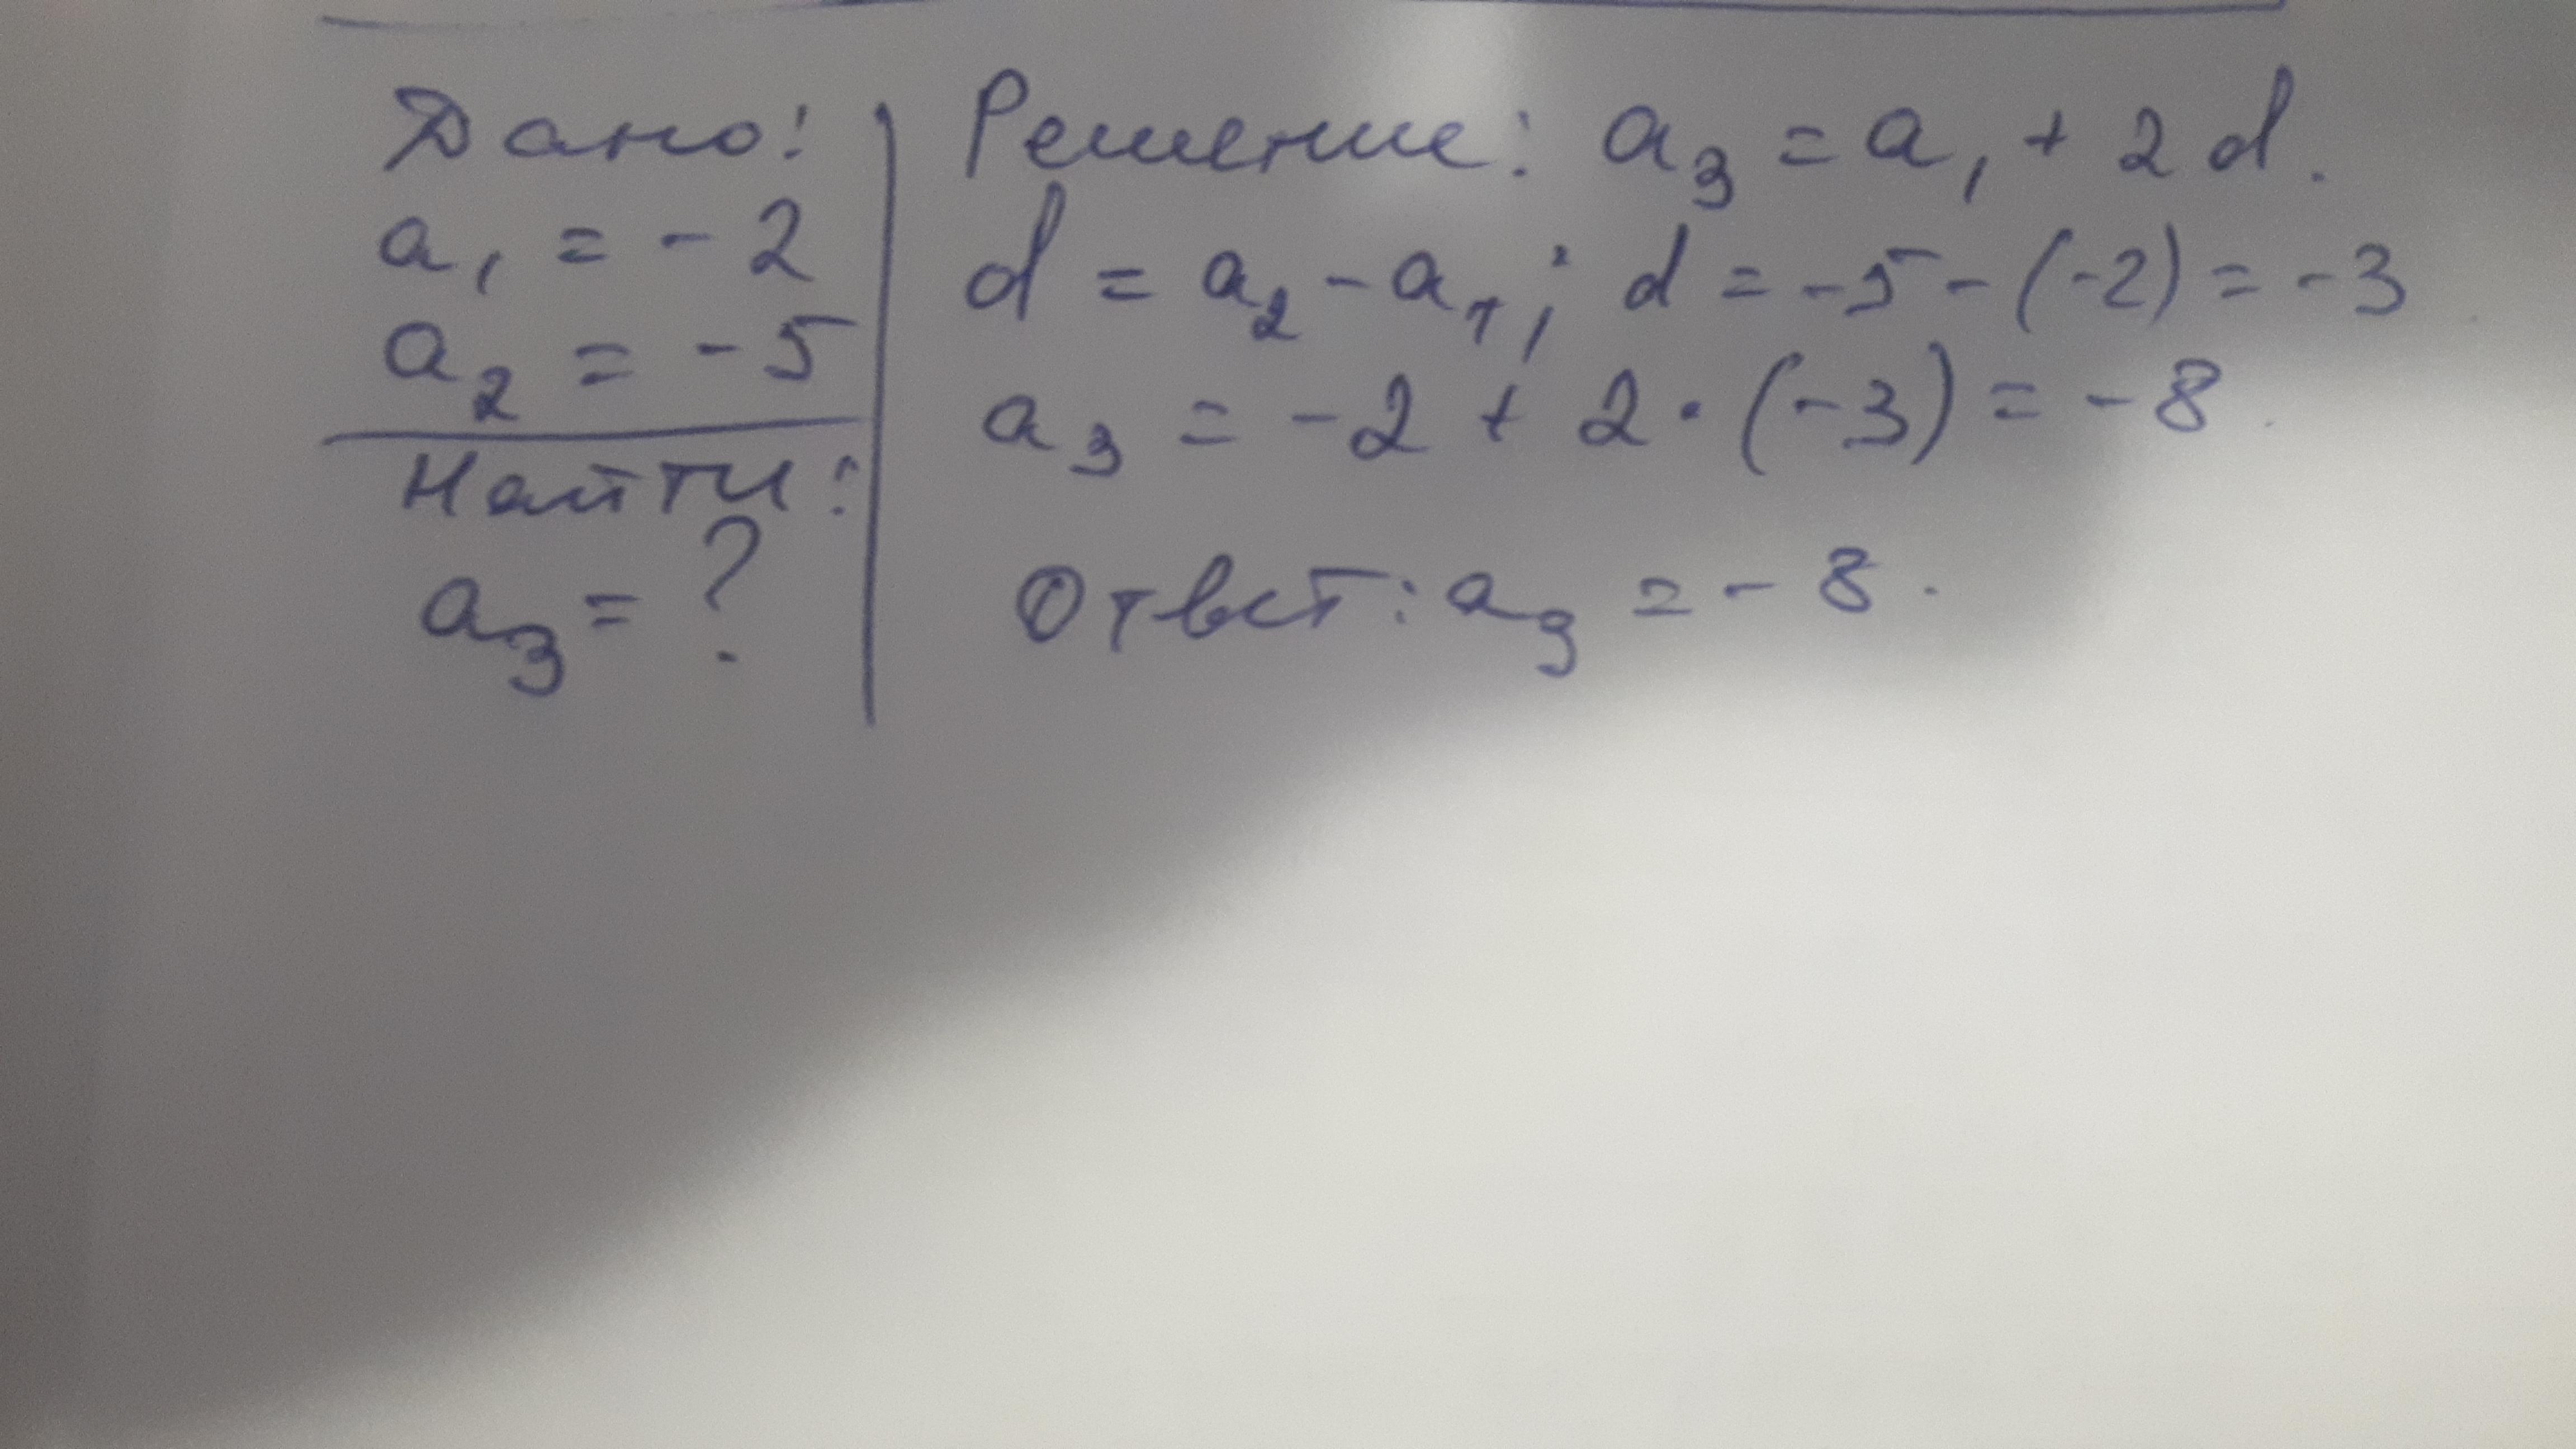 Дано:
a₁ = -2
a₂ = -5
Найти:
a₃ = ?
Решение: a₃ = a₁ + 2d.
d = a₂ - a₁; d = -5 - (-2) = -3
a₃ = -2 + 2 · (-3) = -8.
Ответ: a₃ = -8.